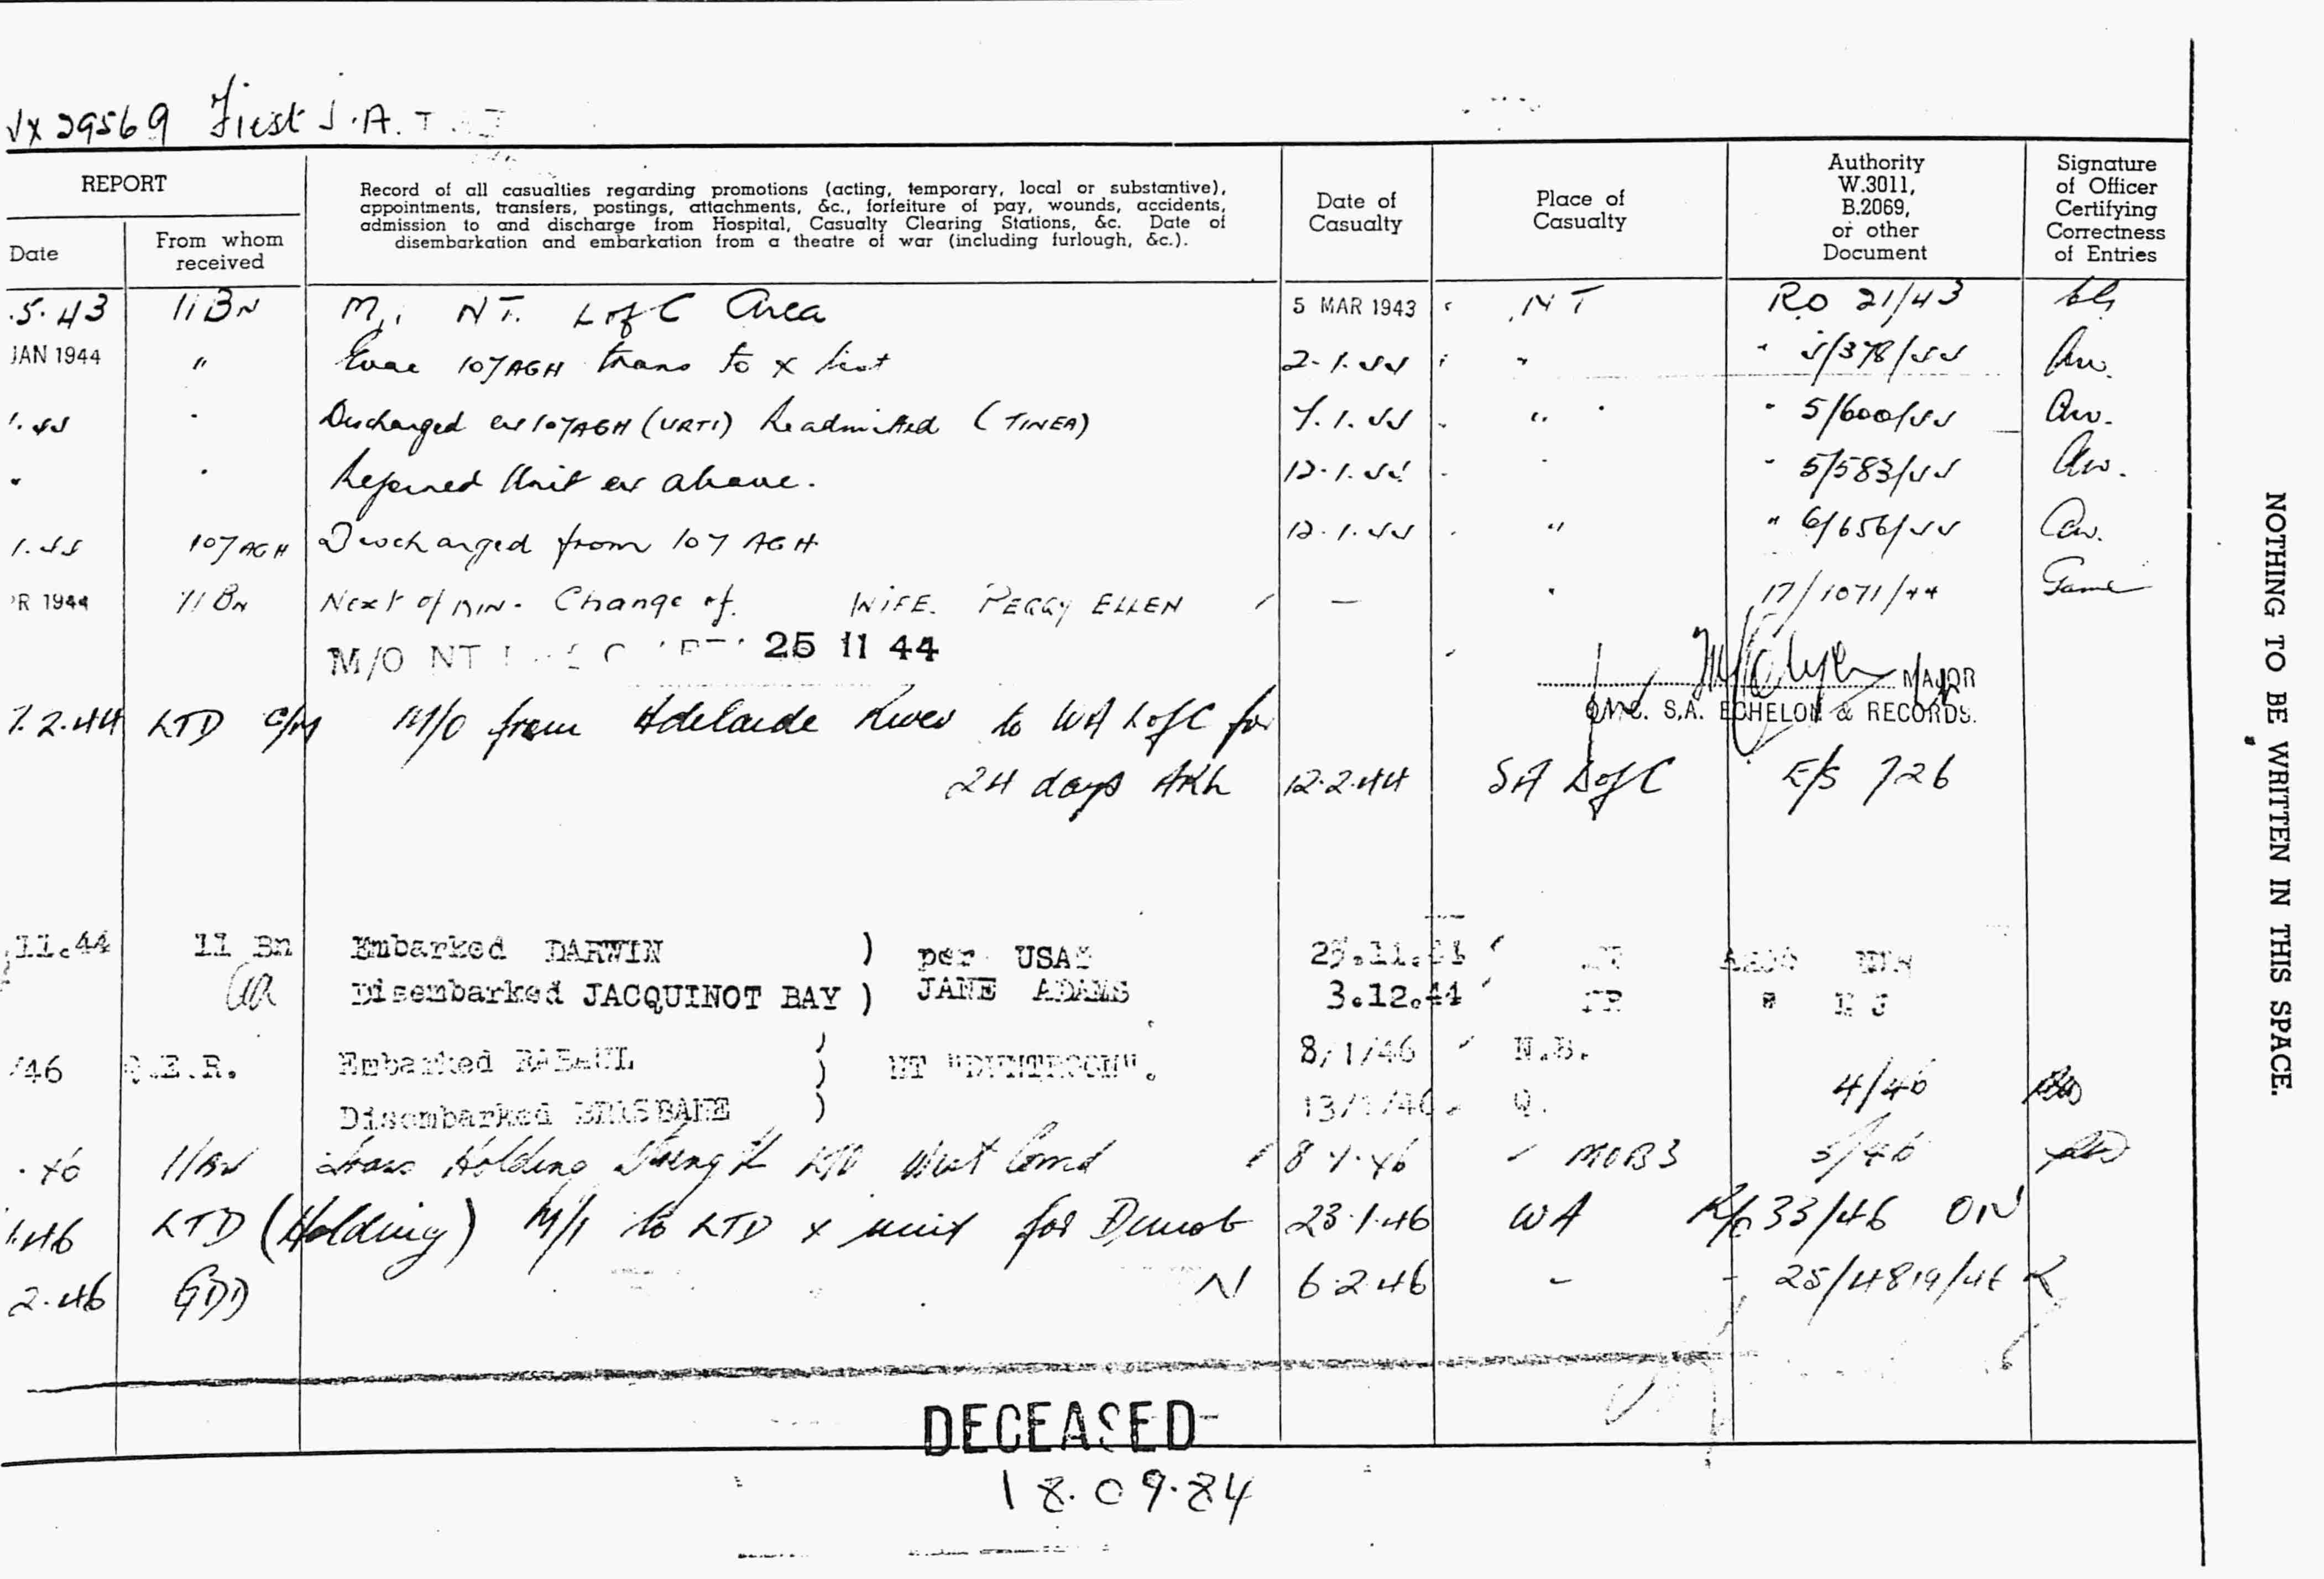 VX 29569 First J.A.
REPORT
Date
From whom received
Record of all casualties regarding promotions (acting, temporary, local or substantive),
appointments, transfers, postings, attachments, &c., forfeiture of pay, wounds, accidents,
admission to and discharge from Hospital, Casualty Clearing Stations, &c. Date of
disembarkation and embarkation from a theatre of war (including furlough, &c.).
Date of Casualty
Place of Casualty
Authority W.3011, B.2069, or other Document
Signature of Officer Certifying Correctness of Entries
.5.43 11 Bn M/I NT. L of C Area 5 MAR 1943 NT RO 21/43
JAN 1944 " Evac 107 AGH trans to X list 2.1.44 " " 5/378/44 Aw.
1.44 " Discharged ex 107 AGH (URTI) Readmitted (TINEA) 7.1.44 " " 5/600/44 Aw.
" " Rejoined Unit ex above. 12.1.44 " " 5/583/44 Aw.
1.44 107 AGH Discharged from 107 AGH 12.1.44 " " 6/656/44 Aw.
R 1944 11 Bn Next of Kin - Change of. WIFE. PEGGY ELLEN — " 17/1071/44
M/O NT 25 11 44
MAJOR
S.A. ECHELON & RECORDS.
7.2.44 LTD C/M M/O from Adelaide River to WA L of C for
24 days ARL 12.2.44 SA L of C E/S 726
.11.44 11 Bn Embarked DARWIN ) per USAT 25.11.44
Disembarked JACQUINOT BAY ) JANE ADAMS 3.12.44
/46 Q.E.R. Embarked RABAUL ) HT "DUNTROON". 8/1/46 N.B.
Disembarked BRISBANE ) 13/1/46 Q. 4/46
.46 11 Bn Trans Holding Strength LTD West Comd 8.1.46 MOB3 5/46
1.46 LTD (Holding) M/I to LTD X unit for Demob 23.1.46 WA R/O 33/46 ON
2.46 GDD N 6.2.46 - - 25/4819/46
DECEASED
18.09.84
NOTHING TO BE WRITTEN IN THIS SPACE.